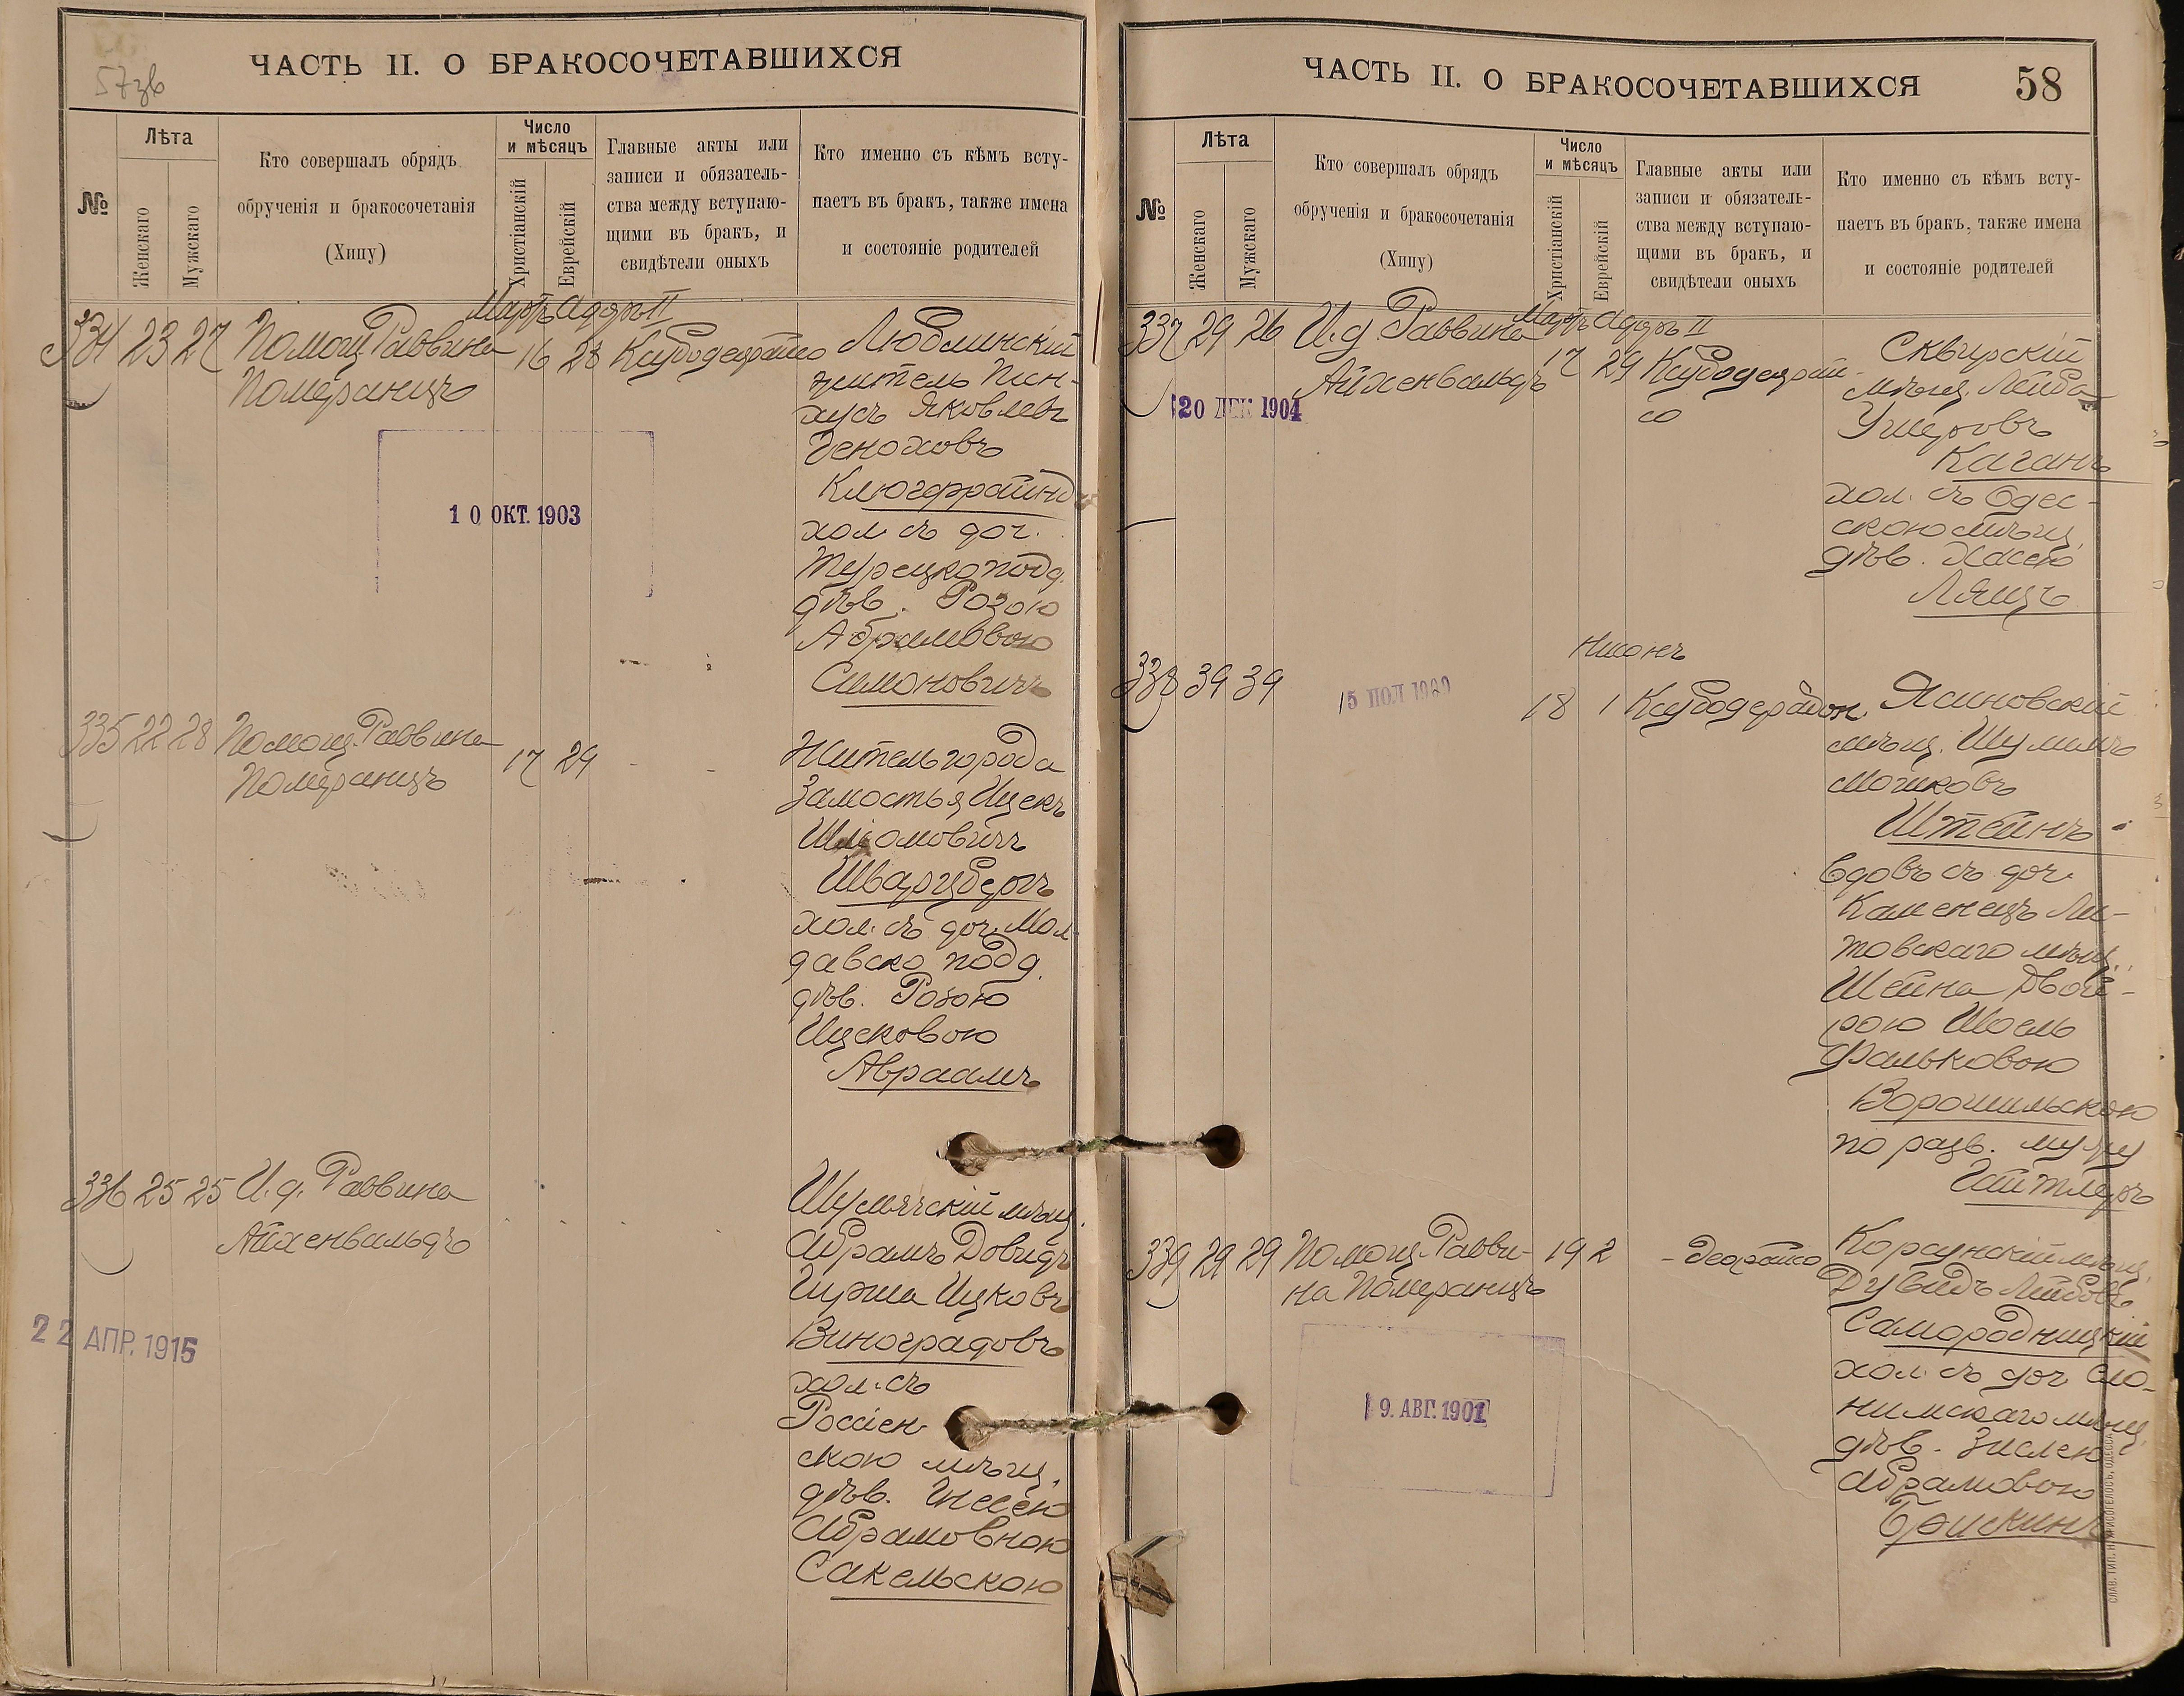 57зв
ЧАСТЬ II. О БРАКОСОЧЕТАВШИХСЯ
№
Лѣта
Женскаго
Мужскаго
Кто совершалъ обрядъ
обрученія и бракосочетанія
(Хипу)
Число
и мѣсяцъ
Христіанскій
Еврейскій
Главные акты или
записи и обязатель-
ства между вступаю-
щими въ бракъ, и
свидѣтели оныхъ
Кто именно съ кѣмъ всту-
паетъ въ бракъ, также имена
и состояніе родителей
Мартъ Адаръ II
334 23 27 Помощ. Раввина
Померанцъ
16 28
Люблинскій
житель Пин-
хусъ Яковлевъ
Геноховъ
Клюгфрайндъ
хол. съ доч.
Турецко подд.
дѣв. Розою
Абрамовою
Симоновичъ
10 ОКТ. 1903
335 22 28 Помощ. Раввина
Померанцъ
17 29 - -
Житель города
Замостья Ицекъ
Шліомовичъ
Шварцбергъ
хол. съ доч. Мол-
давско подд.
дѣв. Розою
Ицековою
Авраамъ
336 25 25 И. д. Раввина
Айхенвальдъ
Шумячскій мѣщ.
Абрамъ Довидъ
Гирша Ицковъ
Виноградовъ
хол. съ
Россіен-
скою мѣщ.
дѣв. Гнесею
Абрамовною
Сакельскою
22 АПР. 1915
ЧАСТЬ II. О БРАКОСОЧЕТАВШИХСЯ
58
№
Лѣта
Женскаго
Мужскаго
Кто совершалъ обрядъ
обрученія и бракосочетанія
(Хипу)
Число
и мѣсяцъ
Христіанскій
Еврейскій
Главные акты или
записи и обязатель-
ства между вступаю-
щими въ бракъ, и
свидѣтели оныхъ
Кто именно съ кѣмъ всту-
паетъ въ бракъ, также имена
и состояніе родителей
Мартъ Адаръ II
337 29 26 И. д. Раввина
Айхенвальдъ
17 29
Сквирскій
мѣщ. Лейба
Ушеровъ
Каганъ
хол. съ Одес-
скою мѣщ.
дѣв. Хасею
Лянцъ
20 ДЕК 1904
Нисонъ
338 39 39
18 1
Ясиновскій
мѣщ. Шулимъ
Мошковъ
Штейнъ
вдовъ съ доч.
Каменецъ Ли-
товскаго мѣщ.
Шейна Двой-
рою Шоель
Фальковою
Ворошильскою
по разв. мужу
Гитлеръ
339 29 29 Помощ. Равви-
на Померанцъ
19 2
Корсунскій мѣщ.
Дувидъ Лейбовъ
Самородницкій
хол. съ доч. Сло-
нимскаго мѣщ.
дѣв. Зислею
Абрамовою
Брискинъ
19. АВГ. 1901